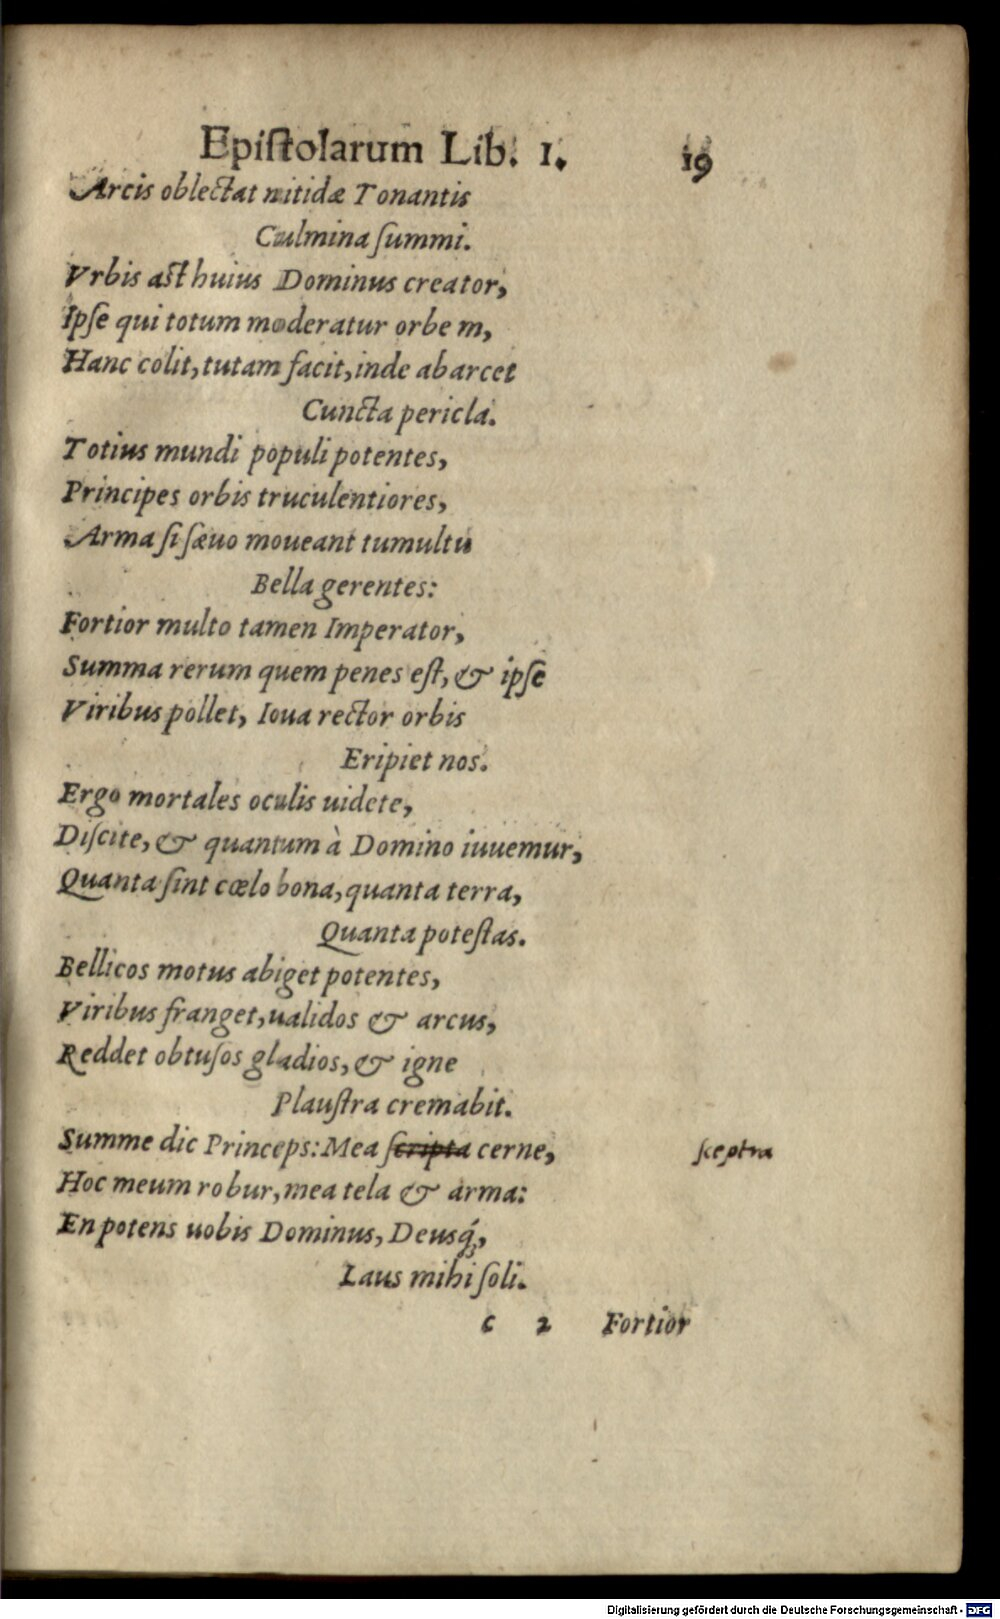 Epiſtolarum Lib. I. 19
Arcis oblectat nitidæ Tonantis
Culmina ſummi.
Vrbis aſt huius Dominus creator,
Ipſe qui totum moderatur orbem,
Hanc colit, tutam facit, inde abarcet
Cuncta pericla.
Totius mundi populi potentes,
Principes orbis truculentiores,
Arma ſi ſæuo moueant tumultu
Bella gerentes:
Fortior multo tamen Imperator,
Summa rerum quem penes eſt, & ipſe
Viribus pollet, Ioua rector orbis
Eripiet nos.
Ergo mortales oculis uidete,
Diſcite, & quantum à Domino iuuemur,
Quanta ſint cœlo bona, quanta terra,
Quanta poteſtas.
Bellicos motus abiget potentes,
Viribus franget, ualidos & arcus,
Reddet obtuſos gladios, & igne
Plauſtra cremabit.
Summe dic Princeps: Mea ſcripta cerne, ſceptra
Hoc meum robur, mea tela & arma:
En potens uobis Dominus, Deusq́;,
Laus mihi ſoli.
c 2 Fortior
Digitalisierung gefördert durch die Deutsche Forschungsgemeinschaft - DFG